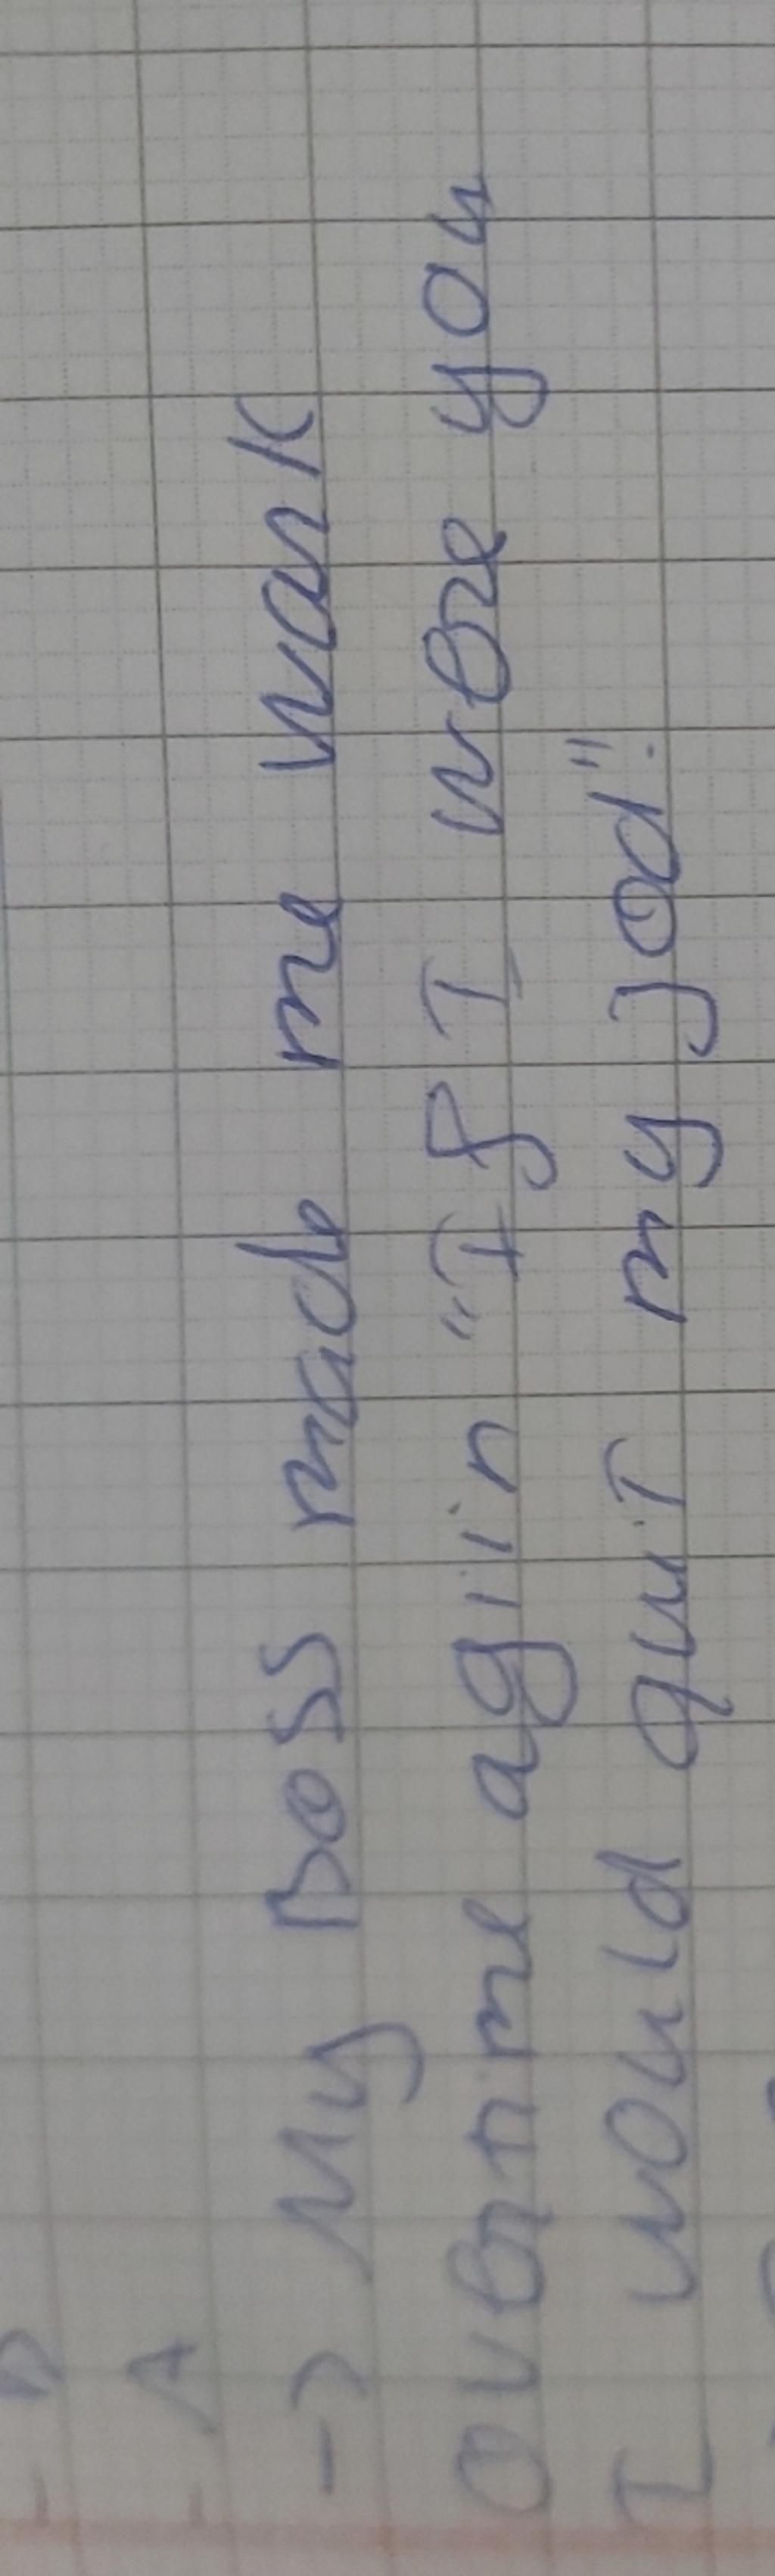 → My Boss made me work
overtime agiin "If I were you
I would quit my jod".